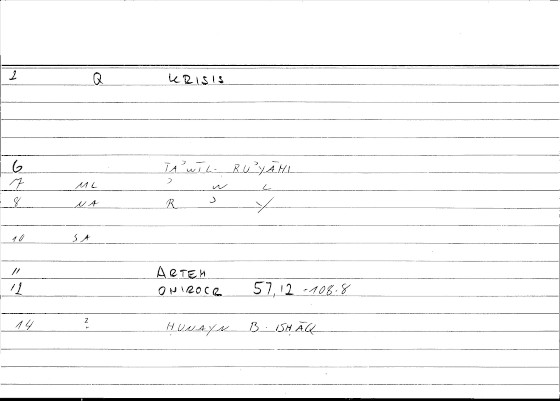 1 Q KRISIS
6 TAʾWĪL- RUʾYĀHI
7 ML ʾ W L
8 NA R ʾ Y
10 SA
11 ARTEM
12 ONIROCR 57,12 -108.8
14 ? HUNAYN B. ISHĀQ